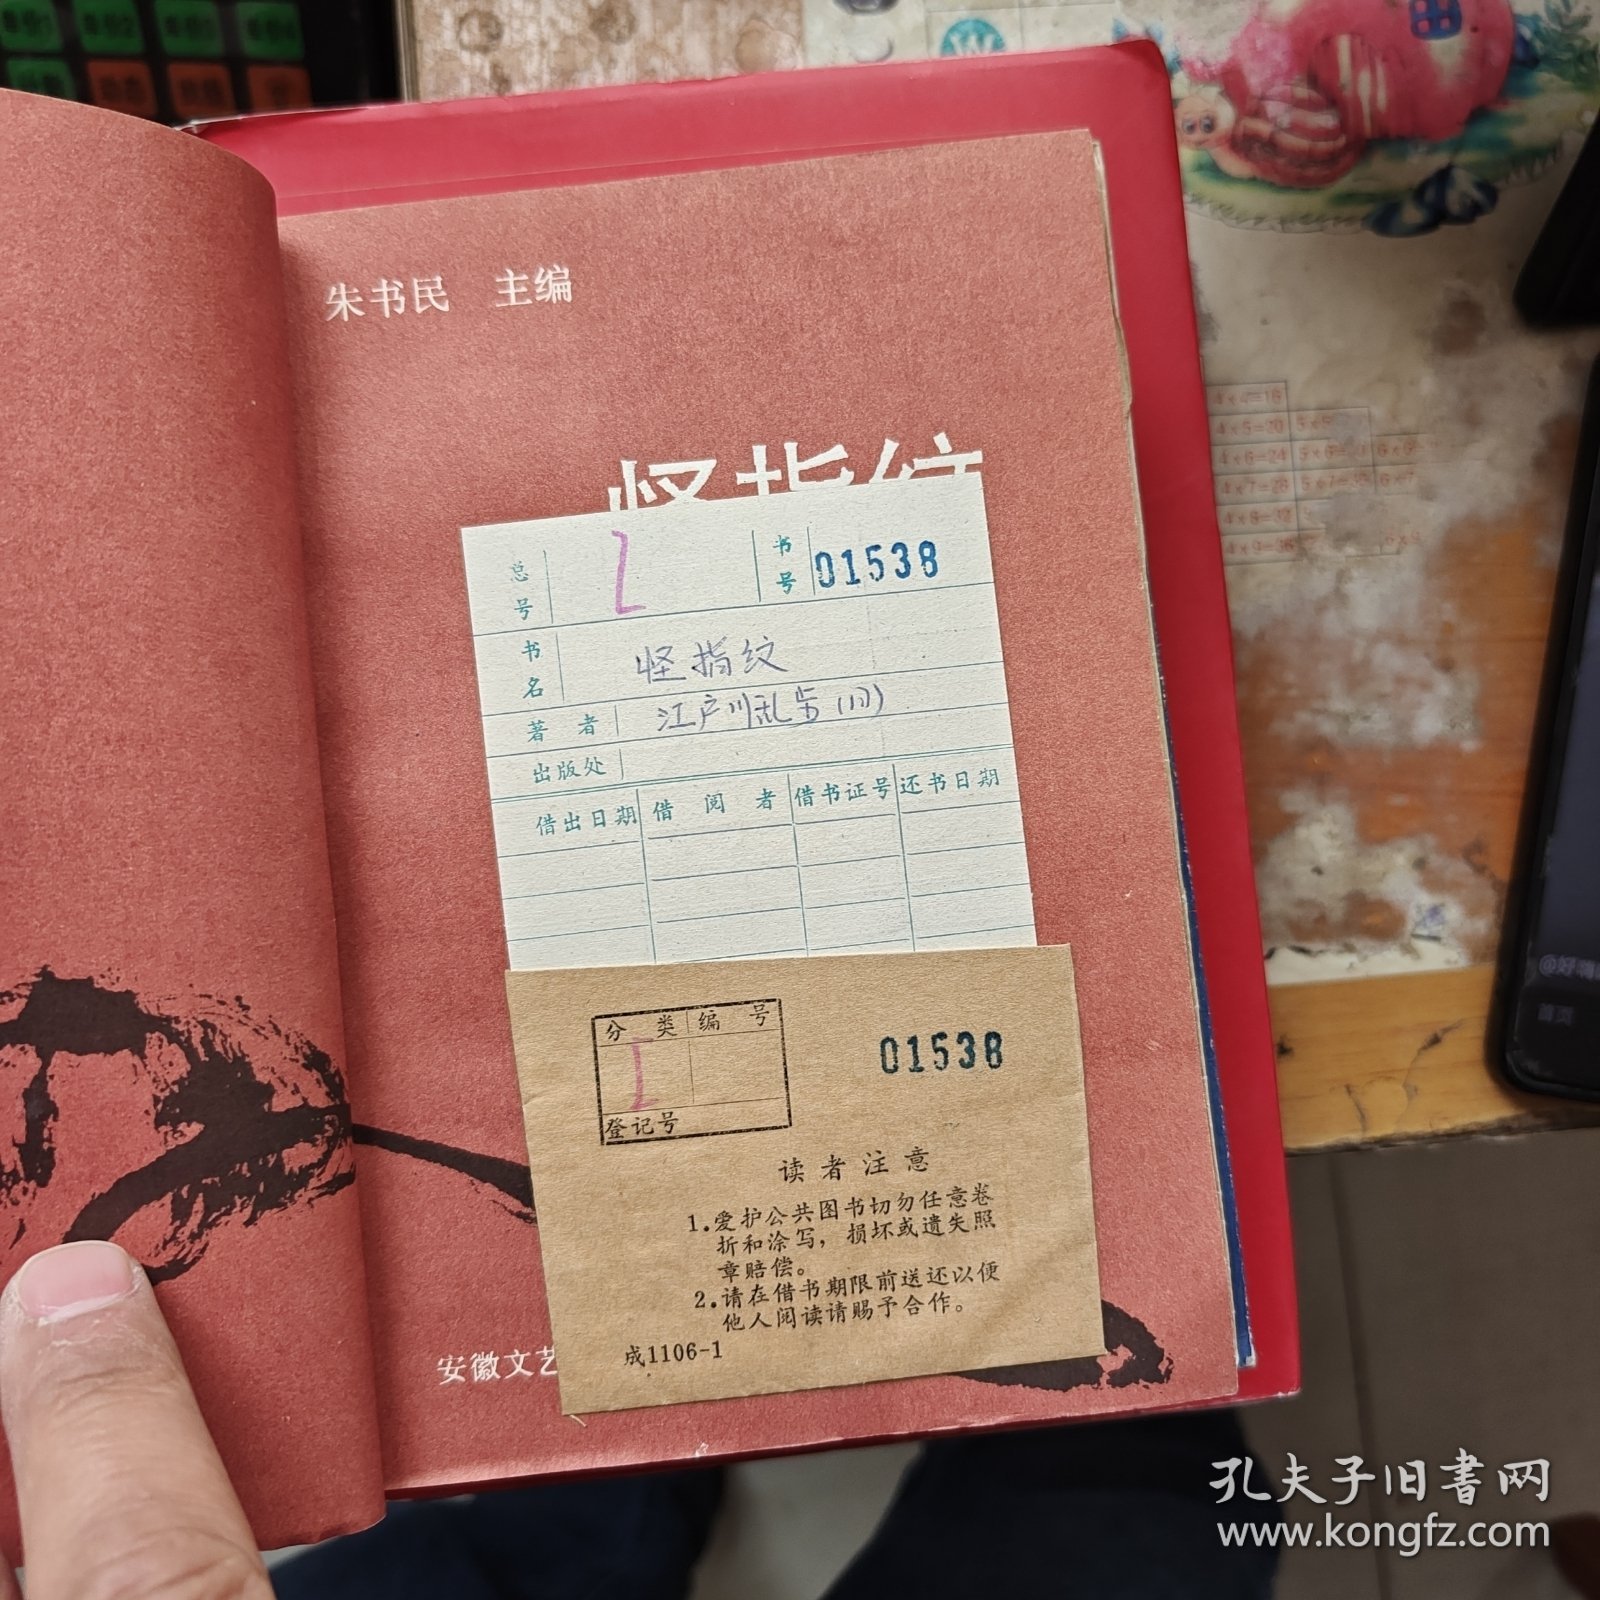 朱书民 主编
怪指纹
总号
I
书号
01538
书名
怪指纹
著者
江户川乱步(日)
出版处
借出日期 借阅者 借书证号 还书日期
分类 编号
I
登记号
01538
读者注意
1.爱护公共图书切勿任意卷
折和涂写，损坏或遗失照
章赔偿。
2.请在借书期限前送还以便
他人阅读请赐予合作。
成1106-1
安徽文艺
4×4=16
4×5=20
4×6=24
4×7=28
4×8=32
4×9=36
首页
孔夫子旧书网
www.kongfz.com